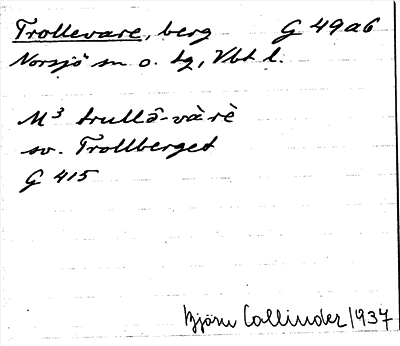 Trollevare, berg G 49a6
Norsjö sn o. tg, Vbt l.
M³ trullō-và·rè
sv. Trollberget
G 415
Björn Collinder 1937